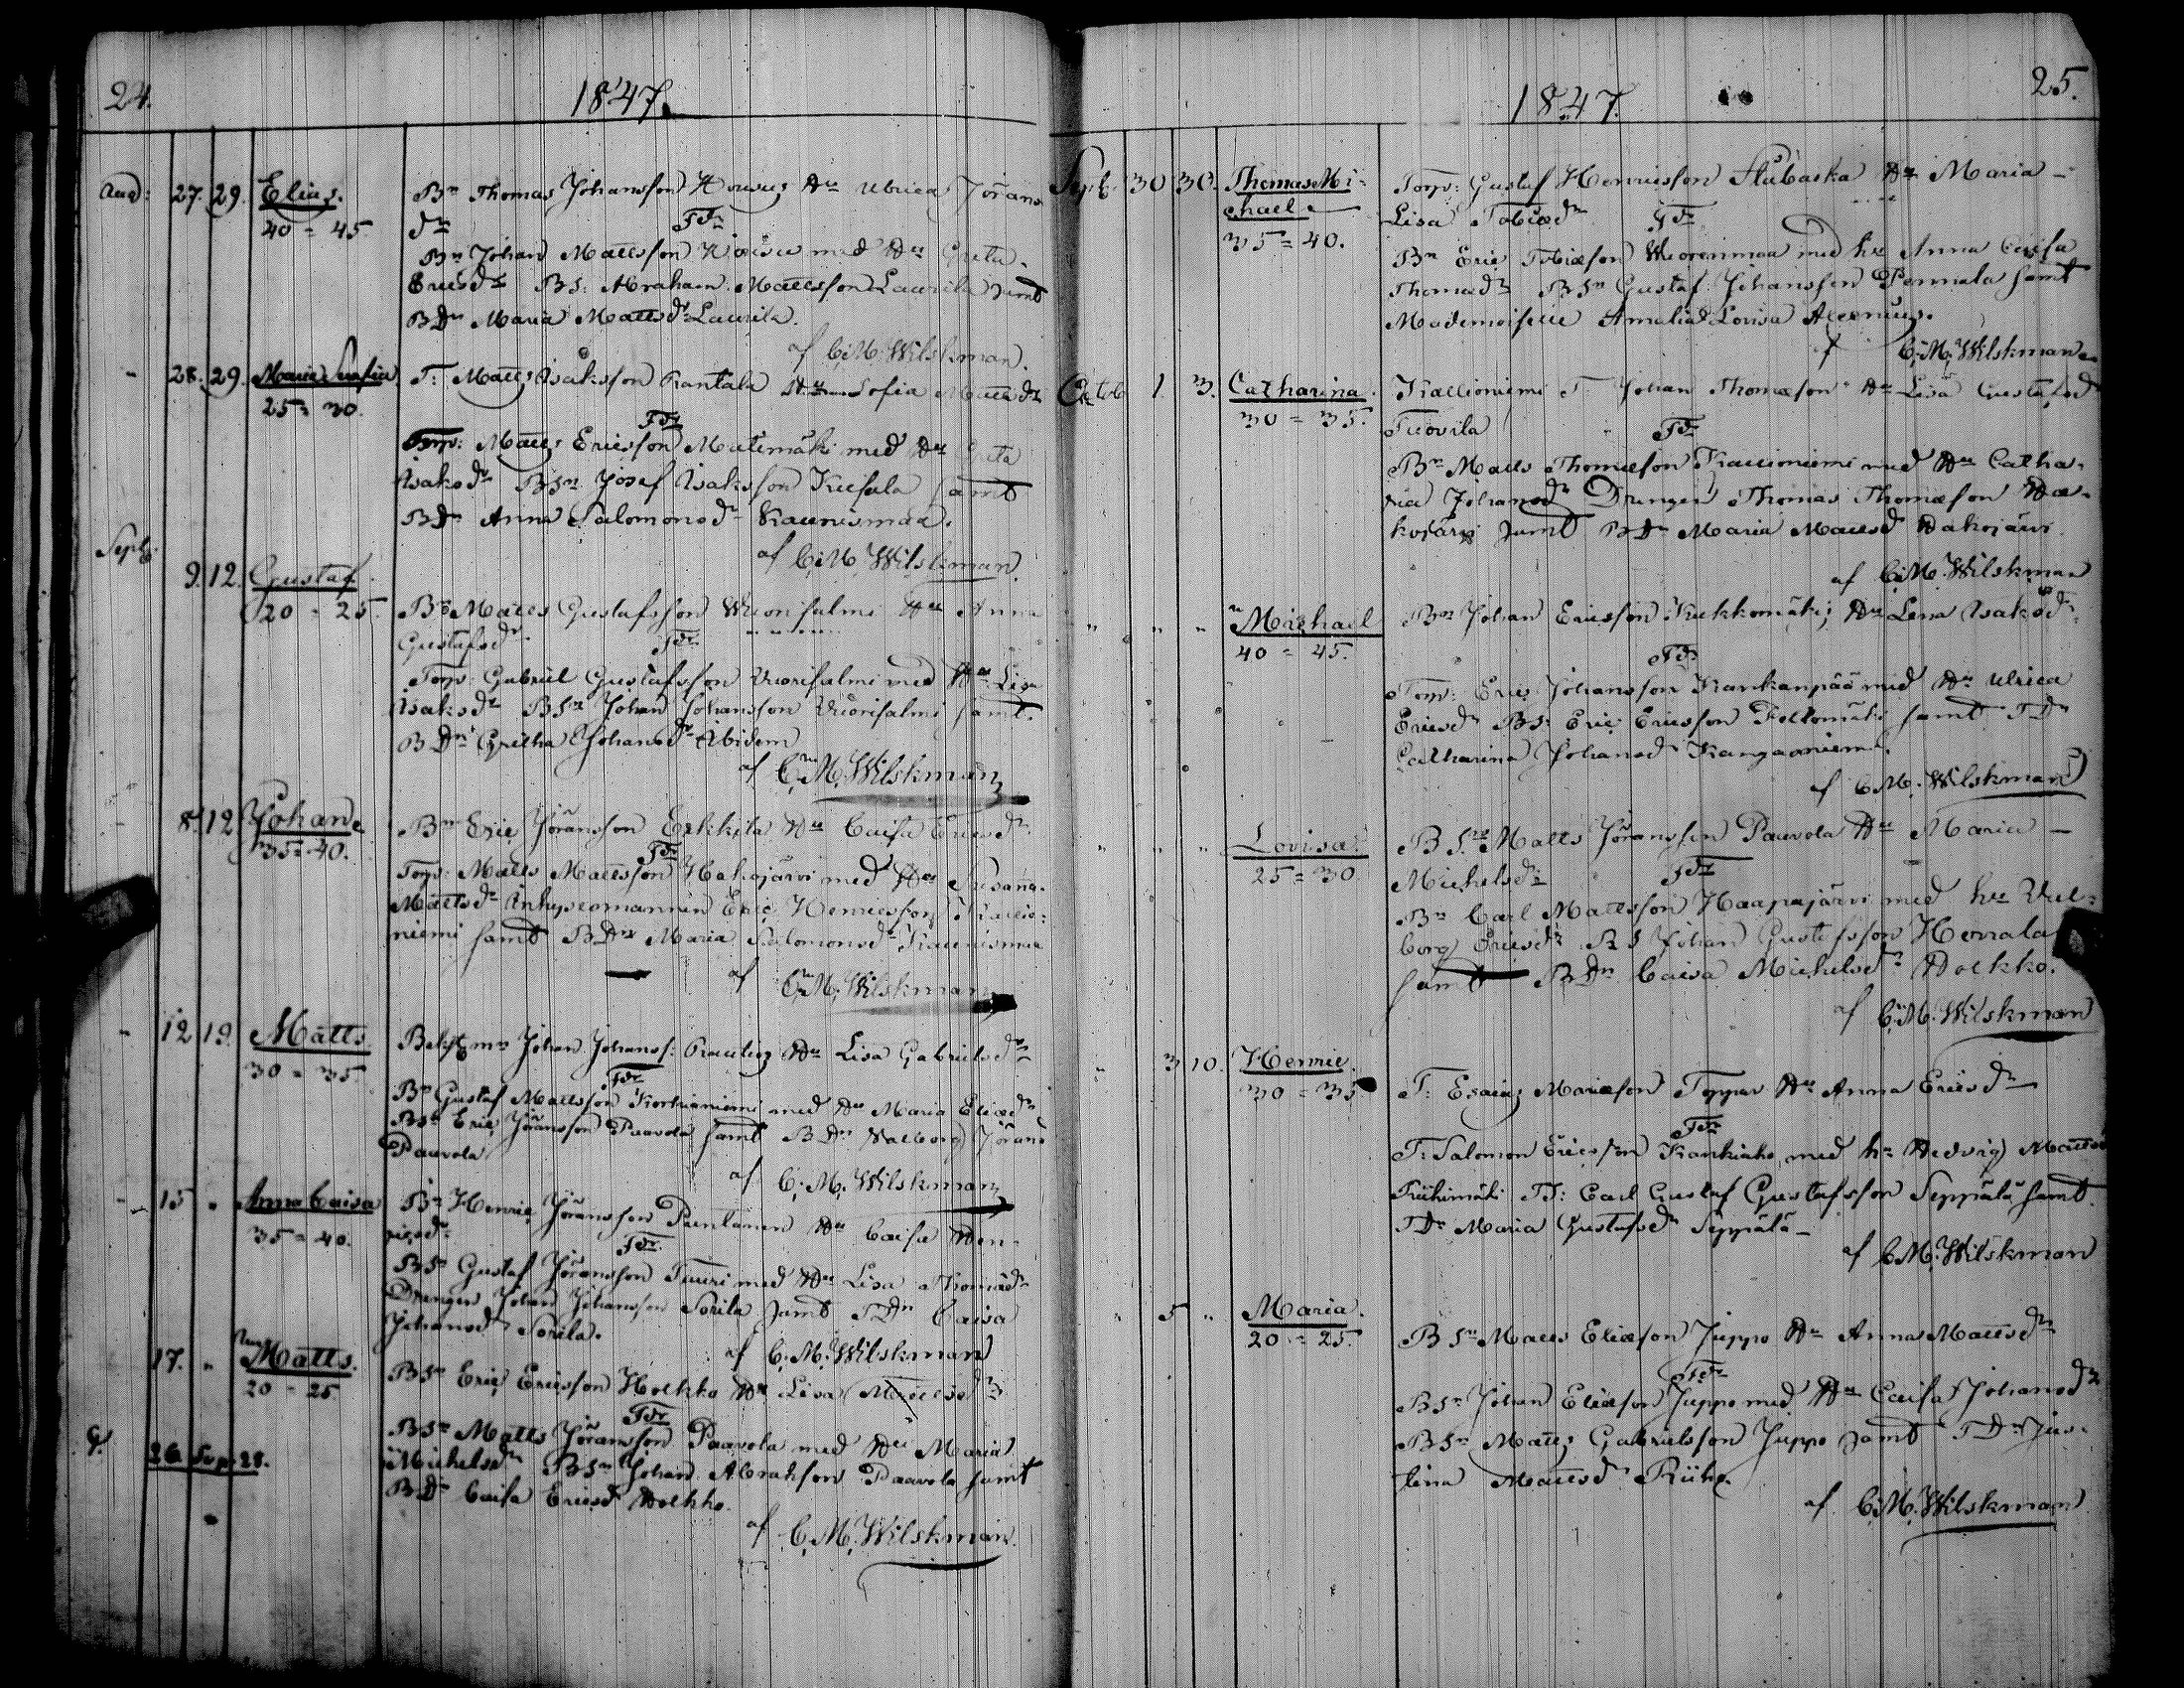 24.
1847.
Aug: 27. 29. Elias. Bn Thomas Johansson Hu Ulrica Jörans
40 = 45. dr Fdr
Bn Johan Mattsson med Hu Greta
Ericsdr BS: Abraham Mattsson Laurila samt
BDr Maria Mattsdr Laurila.
af C.M. Wilskman.
- 28. 29. Maria Serafia T: Matts Isaksson Rantala Hu Sofia Mattsdr
25 = 30. Fdr
Torp: Matts Ericsson Mutimäki med Hu
Isaksdr BSn Josef Isaksson samt
BDr Anna Salomonsdr Kaunismaa.
af C.M. Wilskman.
Sept:
9. 12. Gustaf.
20 = 25. Bn Matts Gustafsson Wuorisalmi Hu Anna
Gustafsdr. Fdr
Torp: Gabriel Gustafsson Wuorisalmi med Hu Lisa
Isaksdr BSn Johan Johansson Wuorisalmi samt
BDr Johansdr Ibidem
af C.M. Wilskman
8. 12. Johan Bn Eric Jöransson Erkkila Hu Caisa Ericsdr
35 = 40. Fdr
Torp: Matts Mattsson Hakojärvi med Hu Susana
Mattsdr Inhysesmannen Eric Henricsson Kallio-
niemi samt BDr Maria Salomonsdr Kaunismaa
af C.M. Wilskman
- 12 19. Matts Johan Johanss: Hu Lisa Gabrielsdr
30 = 35. Fdr
Bn Gustaf Mattsson Korhianiemi med Hu Maria Eliædr
BSn Eric Jöransson Paavola samt BDr Walborg Jörans
Paavola
af C.M. Wilskman
- 15 " Anna Caisa Bn Henric Jöransson Pentänen Hu Caisa Hen-
35 = 40. ricsdr Fdr
BSn Gustaf Jöransson Tuuri med Hu Lisa Thomædr
Drengen Johan Johansson Sorila samt TDr Caisa
Johansdr Sorila.
af C.M. Wilskman
17. " Matts.
20 - 25 BSn Eric Ericsson Holkko Hu Lisa
Fdr
BSn Matts Jöransson Paavola med Hu Maria
26 Sept 28. Michelsdr BSn Johan Abrahsson Paavola samt
BDr Caisa Ericsdr Holkko.
af C.M. Wilskman.
25.
1847.
Sept. 30 30. Thomas Mi- Torp: Gustaf Henricsson Hu Maria -
chael Lisa Tobiædr Fdr
35 = 40. Bn Eric Tobiæson Wuorenmaa med hu Anna Caisa
Thomædr BSn Gustaf Johansson Pernala samt
Mademoiselle Amalia Lovisa
af C.M. Wilskman
Octob 1. 3. Catharina. Kallioniemi T Johan Thomæson Hu Lisa Gustafsd
30 = 35. Tuovila Fdr
Bn Matts Thomæson Kallioniemi med Hu Catha-
rina Johansdr Drengen Thomas Thomæson Ha-
kojärvi samt BDr Maria Mattsd Hakojärvi
af C.M. Wilskman
" " " Michael Bn Johan Ericsson Kukkomäki, Hu Lena Isaksdr
40 = 45. Fdr
Torp: Eric Johansson Kankanpää med Hu Ulrica
Ericsdr BS: Eric Ericsson samt TDr
Catharina Johansdr Kangasniemi.
af C.M. Wilskman
" " " Lovisa. BSn Matts Jöransson Paavola Hu Maria -
25 = 30 Michelsdr Fdr
Bn Carl Mattsson Haapajärvi med hu Wal-
borg Ericsdr BS Johan Gustafsson Herrala
samt BDr Caisa Michelsdr Holkko.
af C.M. Wilskman
" 3 10. Henric.
30 = 35 T: Esaias Mariæson Hu Anna Ericsdr
Fdr
T: Salomon Ericsson med hu Hedvig Mattsd
Riihimäki TS: Carl Gustaf Gustafsson Seppälä samt
TDr Maria Gustafsdr Seppälä -
af C.M. Wilskman
" 5 " Maria.
20 = 25. BSn Matts Eliæson Juppo Hu Anna Mattsdr
Fdr
BSn Johan Eliæson Juppo med Hu Caisa Johansdr
BSn Matts Gabrielsson Juppo samt TDr Jus-
tina Mattsdr
af C.M. Wilskman